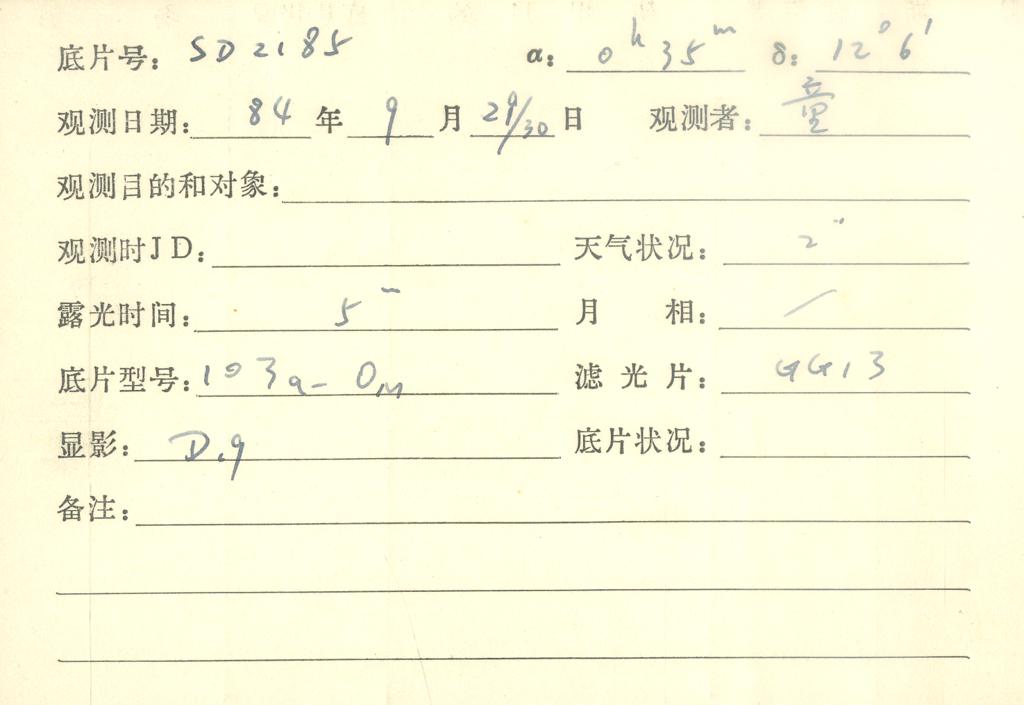 底片号: SD2185 α: 0h 35m δ: 12° 6'
观测日期: 84 年 9 月 29/30 日 观测者: 童
观测目的和对象:
观测时JD: 天气状况: 2"
露光时间: 5m 月 相: /
底片型号: 103a-O 滤光片: GG13
显影: D.9 底片状况:
备注: